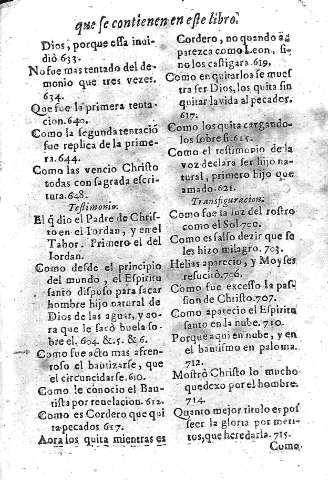 que se contienen en este libro.
Dios, porque essa inui-
dió 633.
No fue mas tentado del de-
monio que tres vezes.
634.
Que fue la primera tenta-
cion. 640.
Como la segunda tentació
fue replica de la prime-
ra. 644.
Como las vencio Christo
todas con sagrada escri-
tura. 648.
Testimonio.
El q̄ dio el Padre de Chris-
to en el Iordan, y en el
Tabor. Primero el del
Iordan.
Como desde el principio
del mundo, el Espiritu
santo dispuso para sacar
hombre hijo natural de
Dios de las aguas, y ao-
ra que le sacó buela so-
bre el. 604. &. 5. & 6.
Como fue acto mas afren-
roso el bautizarse, que
el circundarse. 610.
Como le conocio el Bau-
tista por reuelacion. 612.
Como es Cordero que qui
ta pecados 617.
Aora los quita mientras es
Cordero, no quando a-
parezca como Leon, si-
no los castigara. 619,
Como en quitarlos se mues
tra ser Dios, los quita sin
quitar la vida al pecador.
617.
Como los quita cargando-
los sobre si. 615.
Como el testimonio de la
voz declara ser hijo na-
tural, primero hijo que
amado. 621.
Transfiguracion.
Como fue la luz del rostro
como el Sol 700.
Como es falso dezir que se
les hizo milagro. 703.
Helias aparecio, y Moyses
resucitó. 706.
Como fue excesso la pas-
sion de Christo. 707.
Como aparecio el Espiritu
santo en la nube. 710.
Porque aqui en nube, y en
el bautismo en paloma.
712.
Mostró Christo lo mucho
que dexo por el hombre.
714.
Quanto mejor titulo es pos
seer la gloria por meri-
tos, que heredarla. 715.
Como